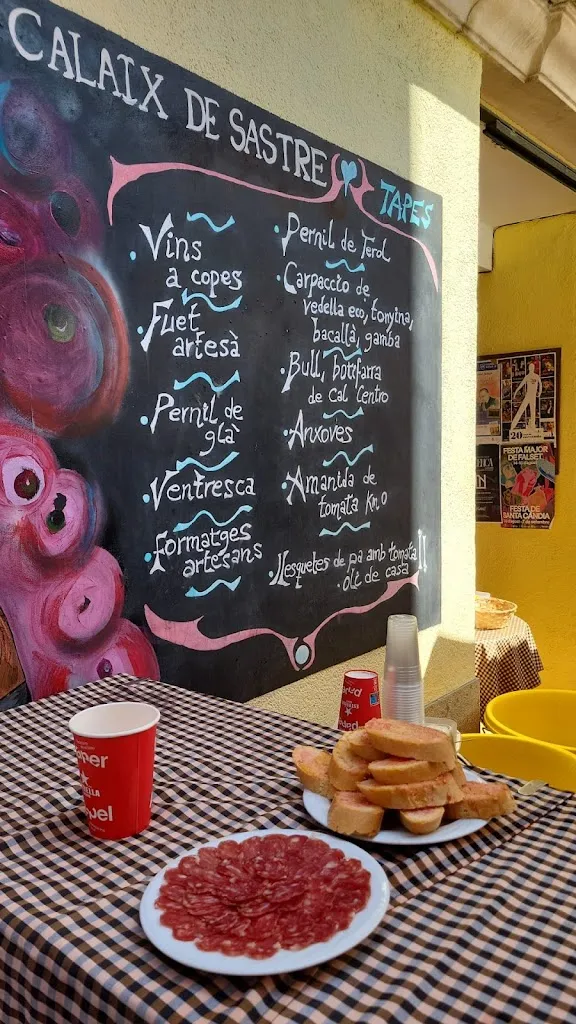 CALAIX DE SASTRE
TAPES
Vins
a copes
Fuet
artesà
Pernil de
glà
Ventresca
Formatges
artesans
Pernil de Terol
Carpaccio de
vedella eco, tonyina,
bacallà, gamba
Bull, botifarra
de Cal Centro
Anxoves
Amanida de
tomata Km 0
Llesquetes de pa amb tomata
oli de casa
20
FESTA MAJOR
DE FALSET
FESTA DE
SANTA CÀNDIA